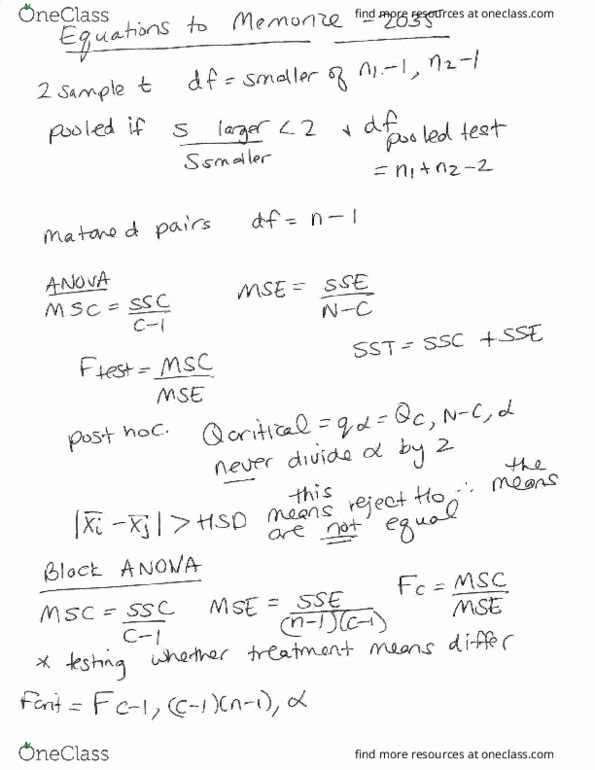 OneClass
find more resources at oneclass.com
Equations to Memorize - 2035
2 sample t df = smaller of n1-1, n2-1
pooled if S larger / S smaller < 2 * df pooled test = n1+n2-2
matched pairs df = n-1
ANOVA
MSC = SSC / C-1 MSE = SSE / N-C
SST = SSC + SSE
Ftest = MSC / MSE
post hoc. Qcritical = qα = Qc, N-C, α
never divide α by 2
|x̄i - x̄j| > HSD this means reject Ho ∴ the means are not equal
Block ANOVA
MSC = SSC / C-1 MSE = SSE / (n-1)(c-1) Fc = MSC / MSE
* testing whether treatment means differ
Fcrit = F c-1, (c-1)(n-1), α
OneClass
find more resources at oneclass.com